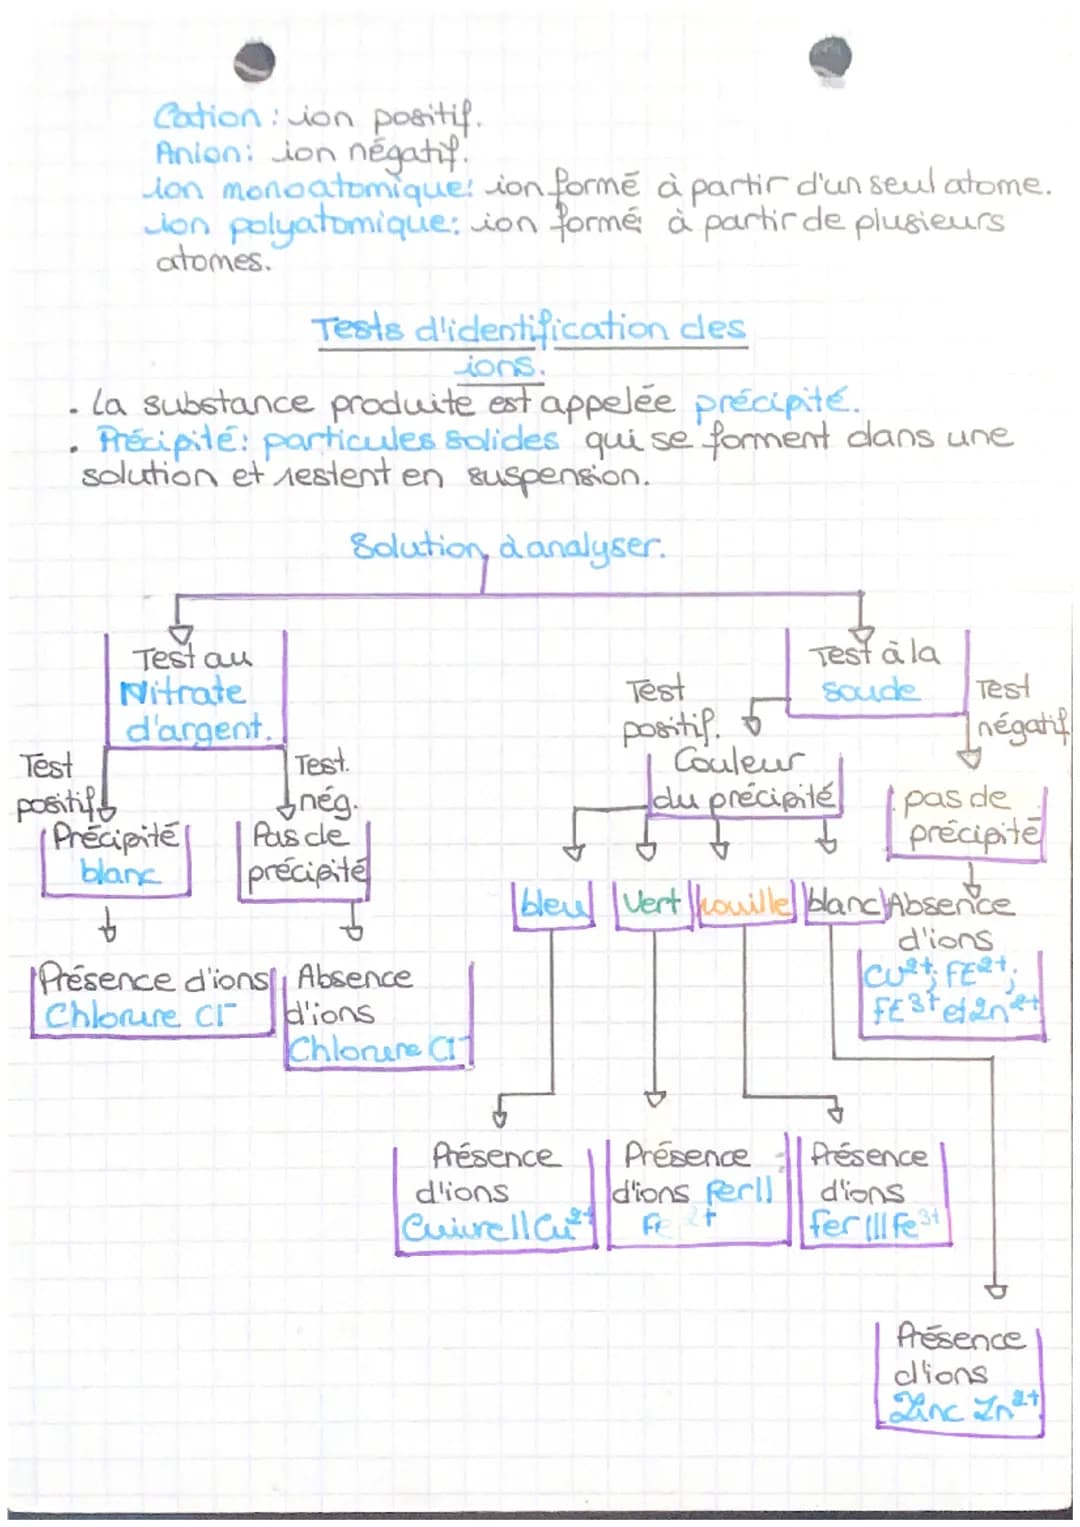 Cation : ion positif.
Anion : ion négatif.
ion monoatomique : ion formé à partir d'un seul atome.
ion polyatomique : ion formé à partir de plusieurs
atomes.
Tests d'identification des
ions.
. La substance produite est appelée précipité.
. Précipité : particules solides qui se forment dans une
solution et restent en suspension.
Solution à analyser.
Test au
Nitrate
d'argent.
Test
positif
Test.
nég.
Précipité
blanc
Pas de
précipité
Présence d'ions
Chlorure Cl⁻
Absence
d'ions
Chlorure Cl⁻
Test à la
soude
Test
positif.
Test
négatif
Couleur
du précipité
pas de
précipité
bleu
Vert
rouille
blanc
Absence
d'ions
Cu²⁺; FE²⁺;
FE3⁺ et Zn²⁺
Présence
d'ions
Cuivre II Cu²⁺
Présence
d'ions fer II
Fe 2+
Présence
d'ions
fer III Fe³⁺
Présence
d'ions
Zinc Zn²⁺